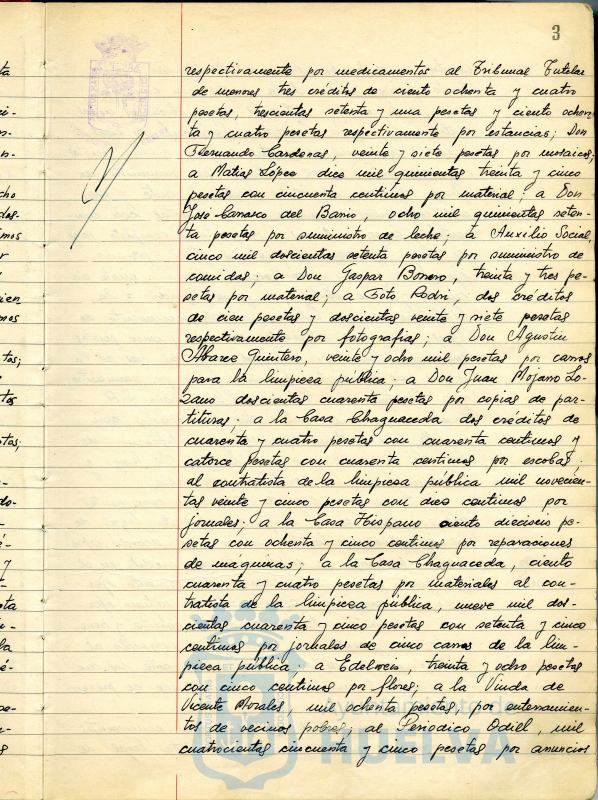 3
respectivamente por medicamentos al Tribunal Tutelar
de menores tres créditos de ciento ochenta y cuatro
pesetas, trescientas setenta y una pesetas y ciento ochen
ta y cuatro pesetas respectivamente por estancias; Don
Fernando Cardenas, veinte y siete pesetas por mosaicos;
a Matias López diez mil quinientas treinta y cinco
pesetas con cincuenta centimos por material; a Don
José Carrasco del Barrio, ocho mil quinientas seten-
ta pesetas por suministro de leche; a Auxilio Social,
cinco mil doscientas setenta pesetas por suministro de
comidas; a Don Gaspar Bonero, treinta y tres pe-
setas por material; a Foto Rodri, dos créditos
de cien pesetas y doscientas veinte y siete pesetas
respectivamente por fotografias; a Don Agustin
Alvarez Quintero, veinte y ocho mil pesetas por carros
para la limpieza pública; a Don Juan Mojarro Lo-
zano doscientas cuarenta pesetas por copias de par-
tituras; a la Casa Chaguaceda dos créditos de
cuarenta y cuatro pesetas con cuarenta centimos y
catorce pesetas con cuarenta centimos por escobas;
al contratista de la limpieza pública mil novecien-
tas veinte y cinco pesetas con diez centimos por
jornales; a la Casa Hispano ciento dieciseis pe-
setas con ochenta y cinco centimos por reparaciones
de máquinas; a la Casa Chaguaceda, ciento
cuarenta y cuatro pesetas por materiales al con-
tratista de la limpieza pública, nueve mil dos-
cientas cuarenta y cinco pesetas con setenta y cinco
centimos por jornales de cinco carros de la lim-
pieza pública; a Edelweis, treinta y ocho pesetas
con cinco centimos por flores; a la Viuda de
Vicente Morales, mil ochenta pesetas, por enterramien-
tos de vecinos pobres; al Periodico Odiel, mil
cuatrocientas cincuenta y cinco pesetas por anuncios
Ayuntamiento de
HUELVA